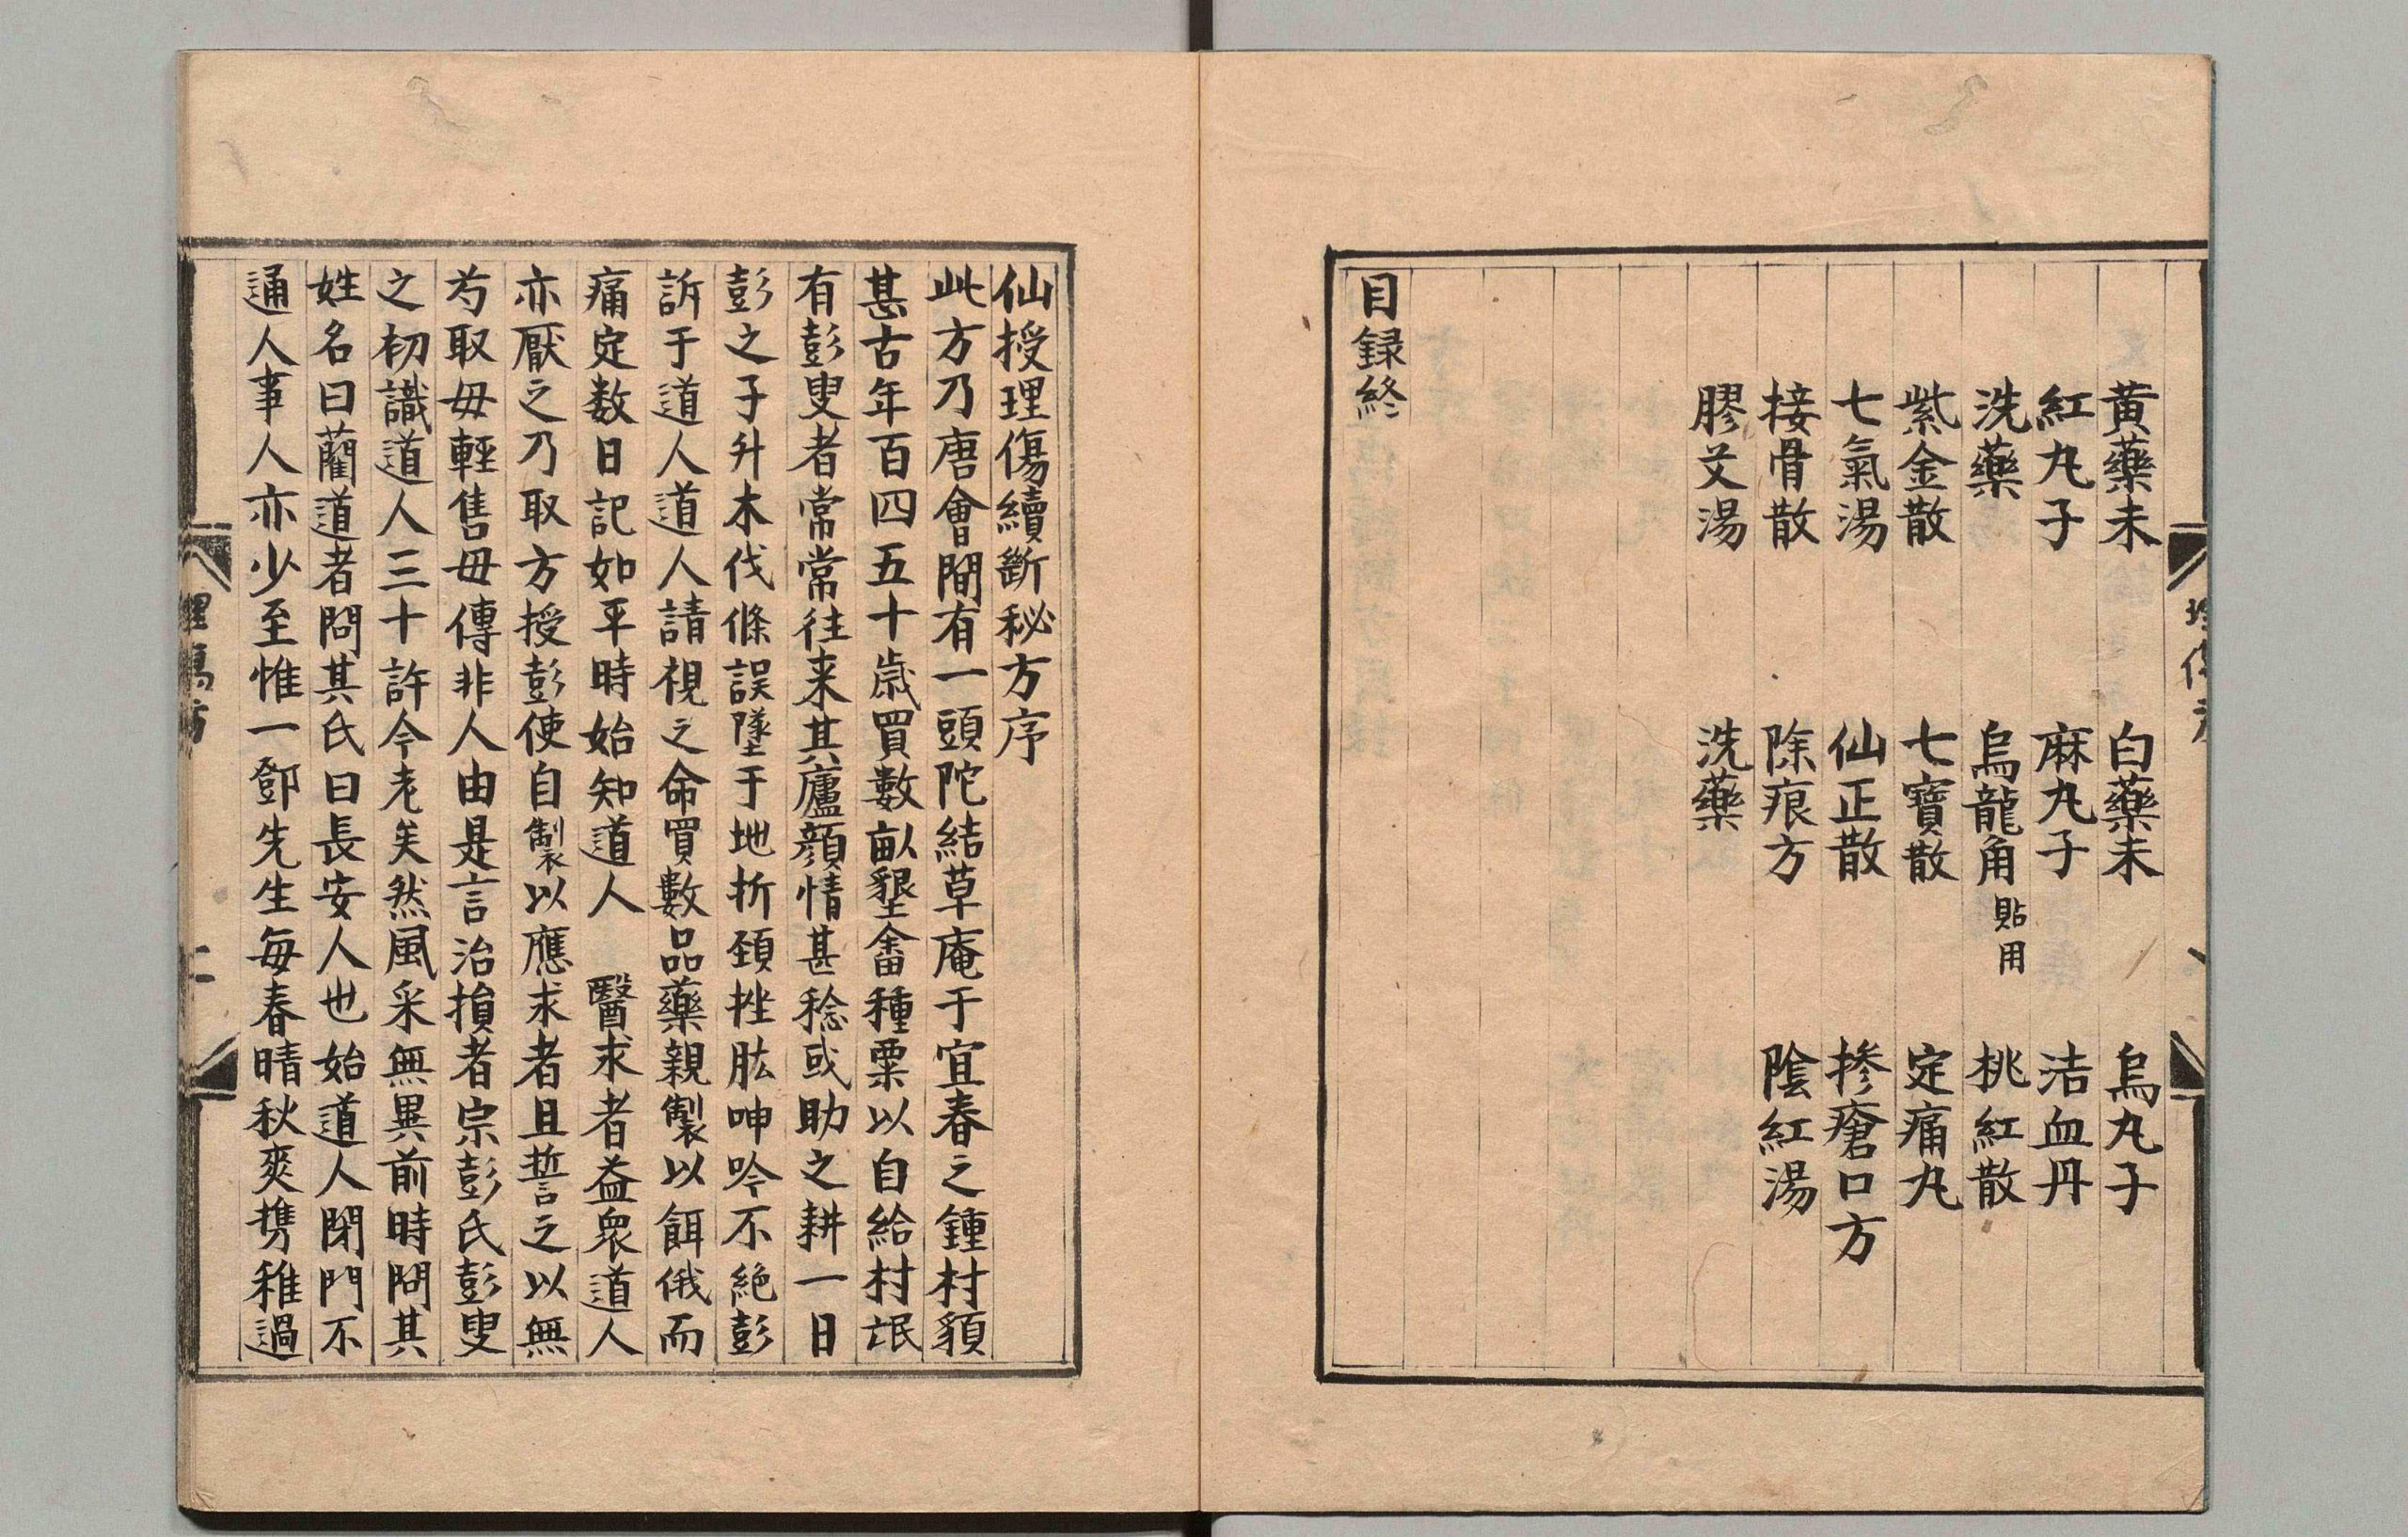 黄藥末　白藥末　烏丸子
紅丸子　麻丸子　活血丹
洗藥　烏龍角貼用　桃紅散
紫金散　七寶散　定痛丸
七氣湯　仙正散　摻瘡口方
接骨散　除痕方　陰紅湯
膠艾湯　洗藥
目録終
仙授理傷續斷秘方序
此方乃唐會間有一頭陀結草庵于宜春之鍾村貌
甚古年百四五十歲買數畝墾畬種粟以自給村氓
有彭叟者常常往来其廬顔情甚稔或助之耕一日
彭之子升木伐條誤墜于地折頚挫肱呻吟不絶彭
訴于道人道人請視之命買數品藥親製以餌俄而
痛定数日記如平時始知道人　醫求者益衆道人
亦厭之乃取方授彭使自製以應求者且誓之以無
芍取毋輕售毋傳非人由是言治損者宗彭氏彭叟
之初識道人三十許今老矣然風采無異前時問其
姓名曰藺道者問其氏曰長安人也始道人閉門不
通人事人亦少至惟一鄧先生每春晴秋爽携稚過